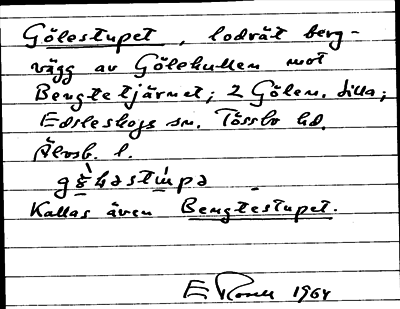 Gölestupet, lodrät berg-
vägg av Gölekullen mot
Bengtetjärnet; 2 Gölen. lilla;
Edsleskogs sn. Tössbo hd.
Älvsb. l.
Kallas även Bengtestupet.
E Rosell 1964